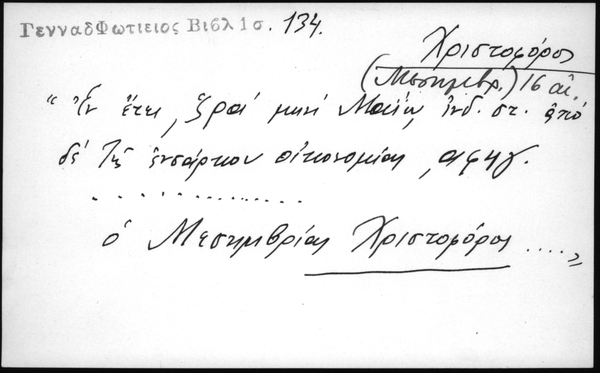 ΓενναδΦωτιειος Βιβλ 1σ. 134.
Χριστοφόρος
(Μεσημβρ.) 16 αἰ.
“Ἐν ἔτει ͵ζραʹ μηνὶ Μαΐῳ, ἰνδ. στ. ἀπὸ
δέ τῆς ἐνσάρκου οἰκονομίας ͵αφϟγ.
. . . . . . . . . . . . .
ὁ Μεσημβρίας Χριστοφόρος ....”